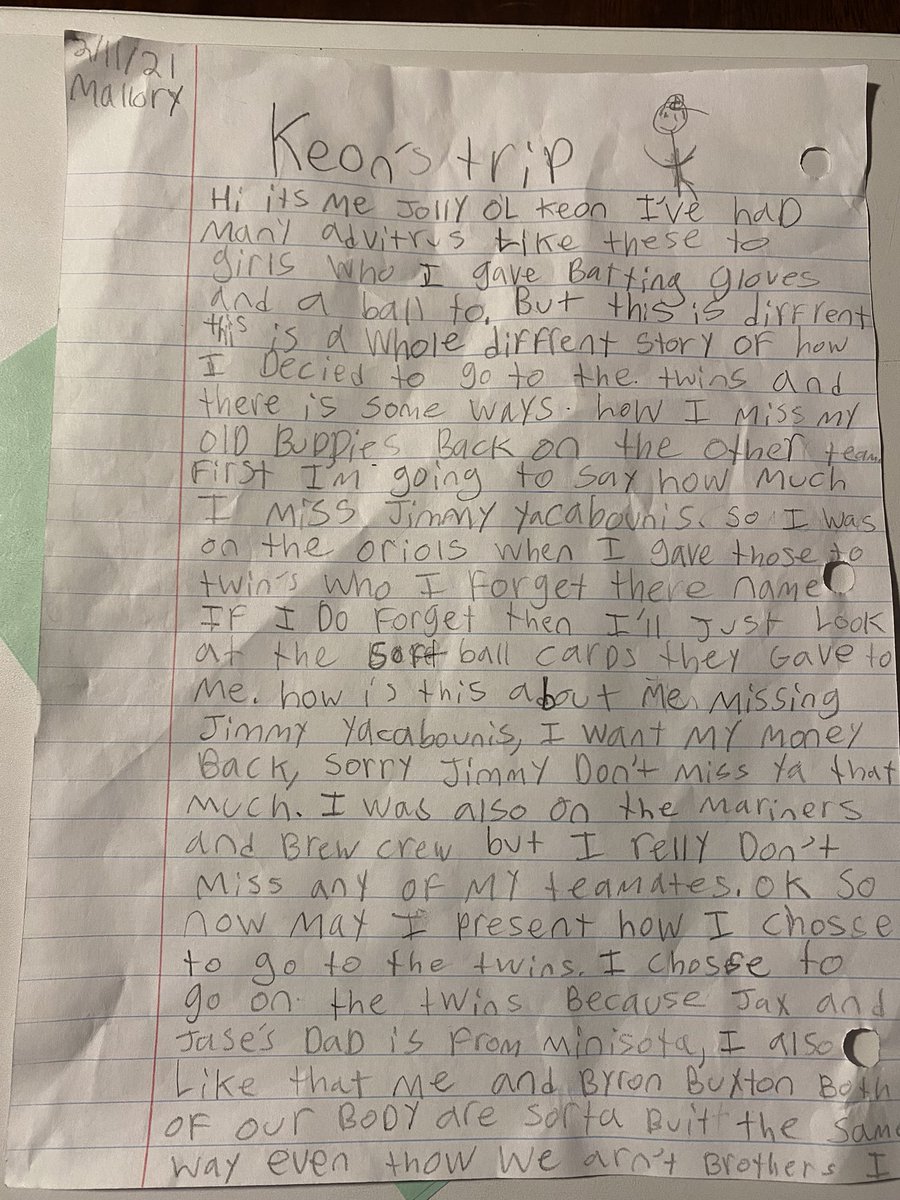 2/11/21
Mallory
Keon's trip
Hi its me Jolly OL Keon I've had
many advitrus Like these to
girls who I gave Batting gloves
and a ball to. But this is diffrent
this is a whole diffrent story of how
I Decied to go to the twins and
there is some ways. how I miss my
OlD Buddies Back on the other team
First I'm going to say how much
I miss Jimmy Yacabounis. so I was
on the oriols when I gave those to
twin's who I Forget there name
IF I Do Forget then I'll Just Look
at the Soft ball cards they Gave to
me. how is this about me missing
Jimmy Yacabounis, I want my money
Back, sorry Jimmy Don't miss ya that
much. I was also on the mariners
and Brew crew but I relly Don't
miss any of my teamates. OK So
now may I present how I chosse
to go to the twins. I chosse to
go on the twins Because Jax and
Jase's DaD is From minisota, I also
Like that me and Byron Buxton Both
OF our BODY are sorta Buit the same
way even thow we arn't Brothers I